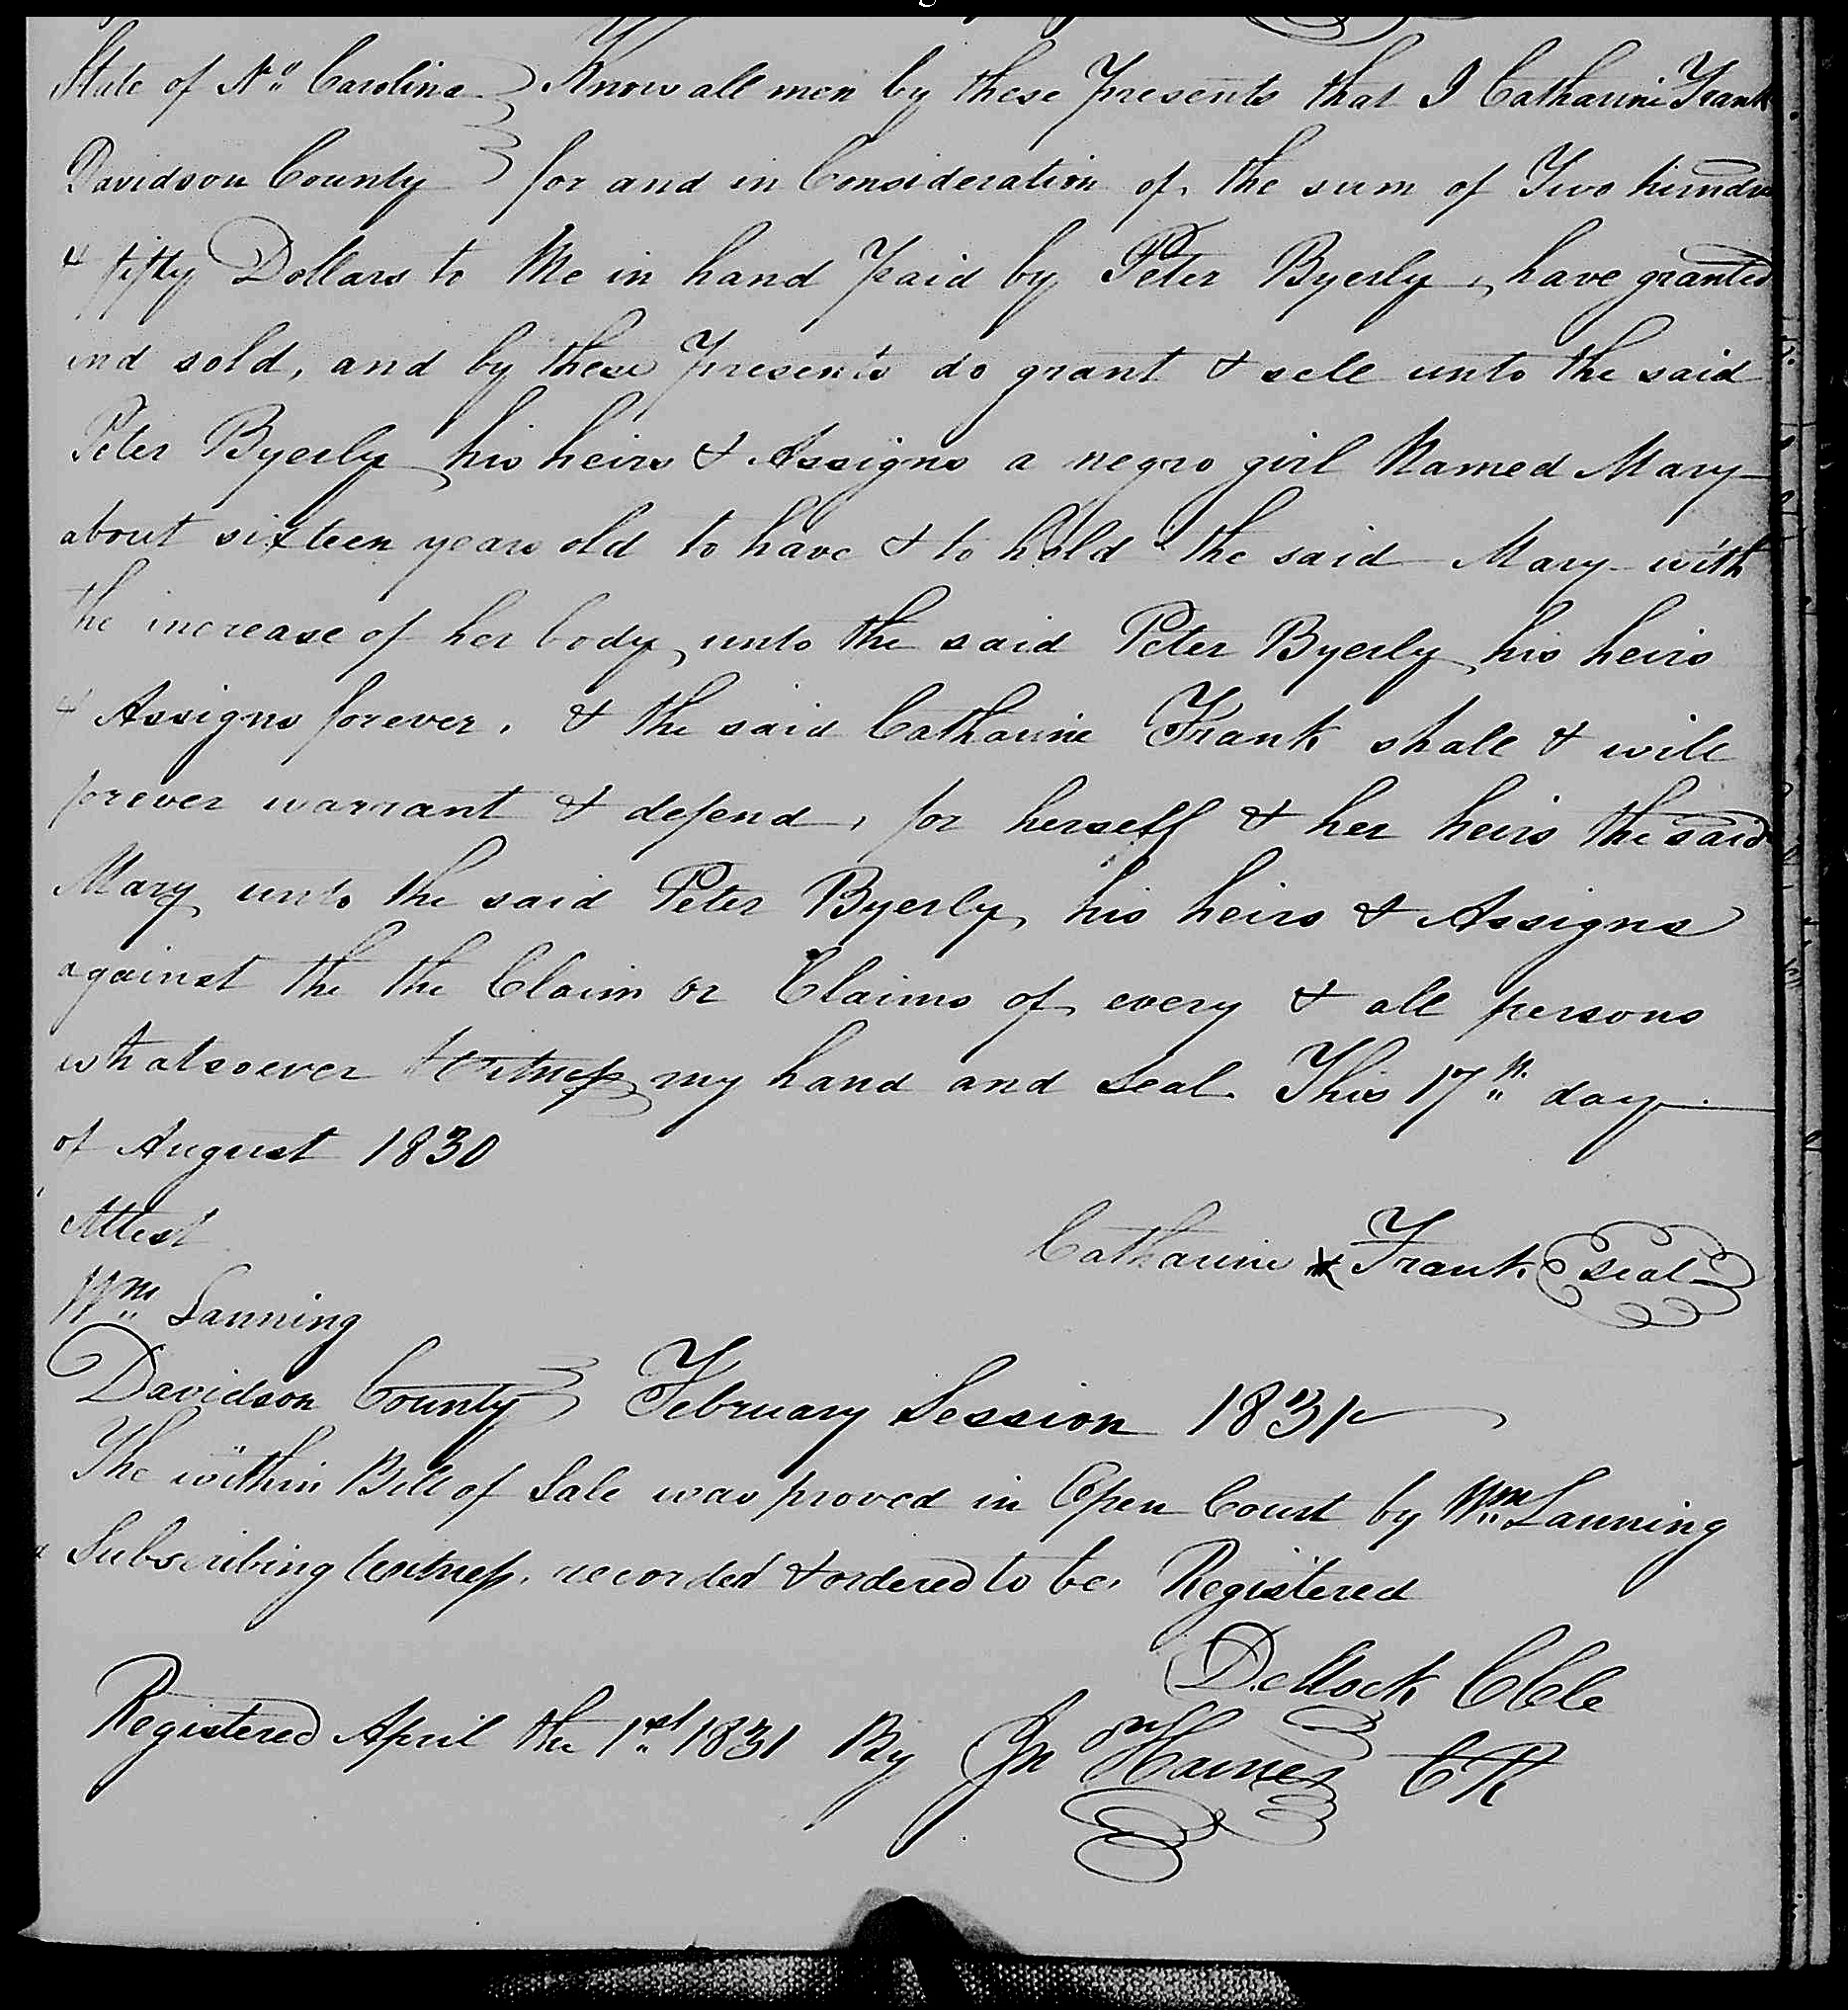 State of No Carolina } Know all men by these Presents that I Catharine Frank
Davidson County } for and in Consideration of the sum of Two hundred
& fifty Dollars to Me in hand Paid by Peter Byerly, have granted
and sold, and by these Presents do grant & sell unto the said
Peter Byerly his heirs & Assigns a negro girl Named Mary
about sixteen years old to have & to hold the said Mary with
the increase of her body unto the said Peter Byerly his heirs
& Assigns forever. & the said Catharine Frank shall & will
forever warrant & defend, for herself & her heirs the said
Mary unto the said Peter Byerly his heirs & Assigns
against the the Claim or Claims of every & all persons
whatsoever Witness my hand and seal This 17th day
of August 1830
Attest
Catharine X Frank seal
Wm Lanning
Davidson County } February Session 1831
The within Bill of Sale was proved in Open Court by Wm Lanning
a Subscribing Witness, recorded & ordered to be Registered
D. Mock CClk
Registered April the 1st 1831 By Jn Hames CR